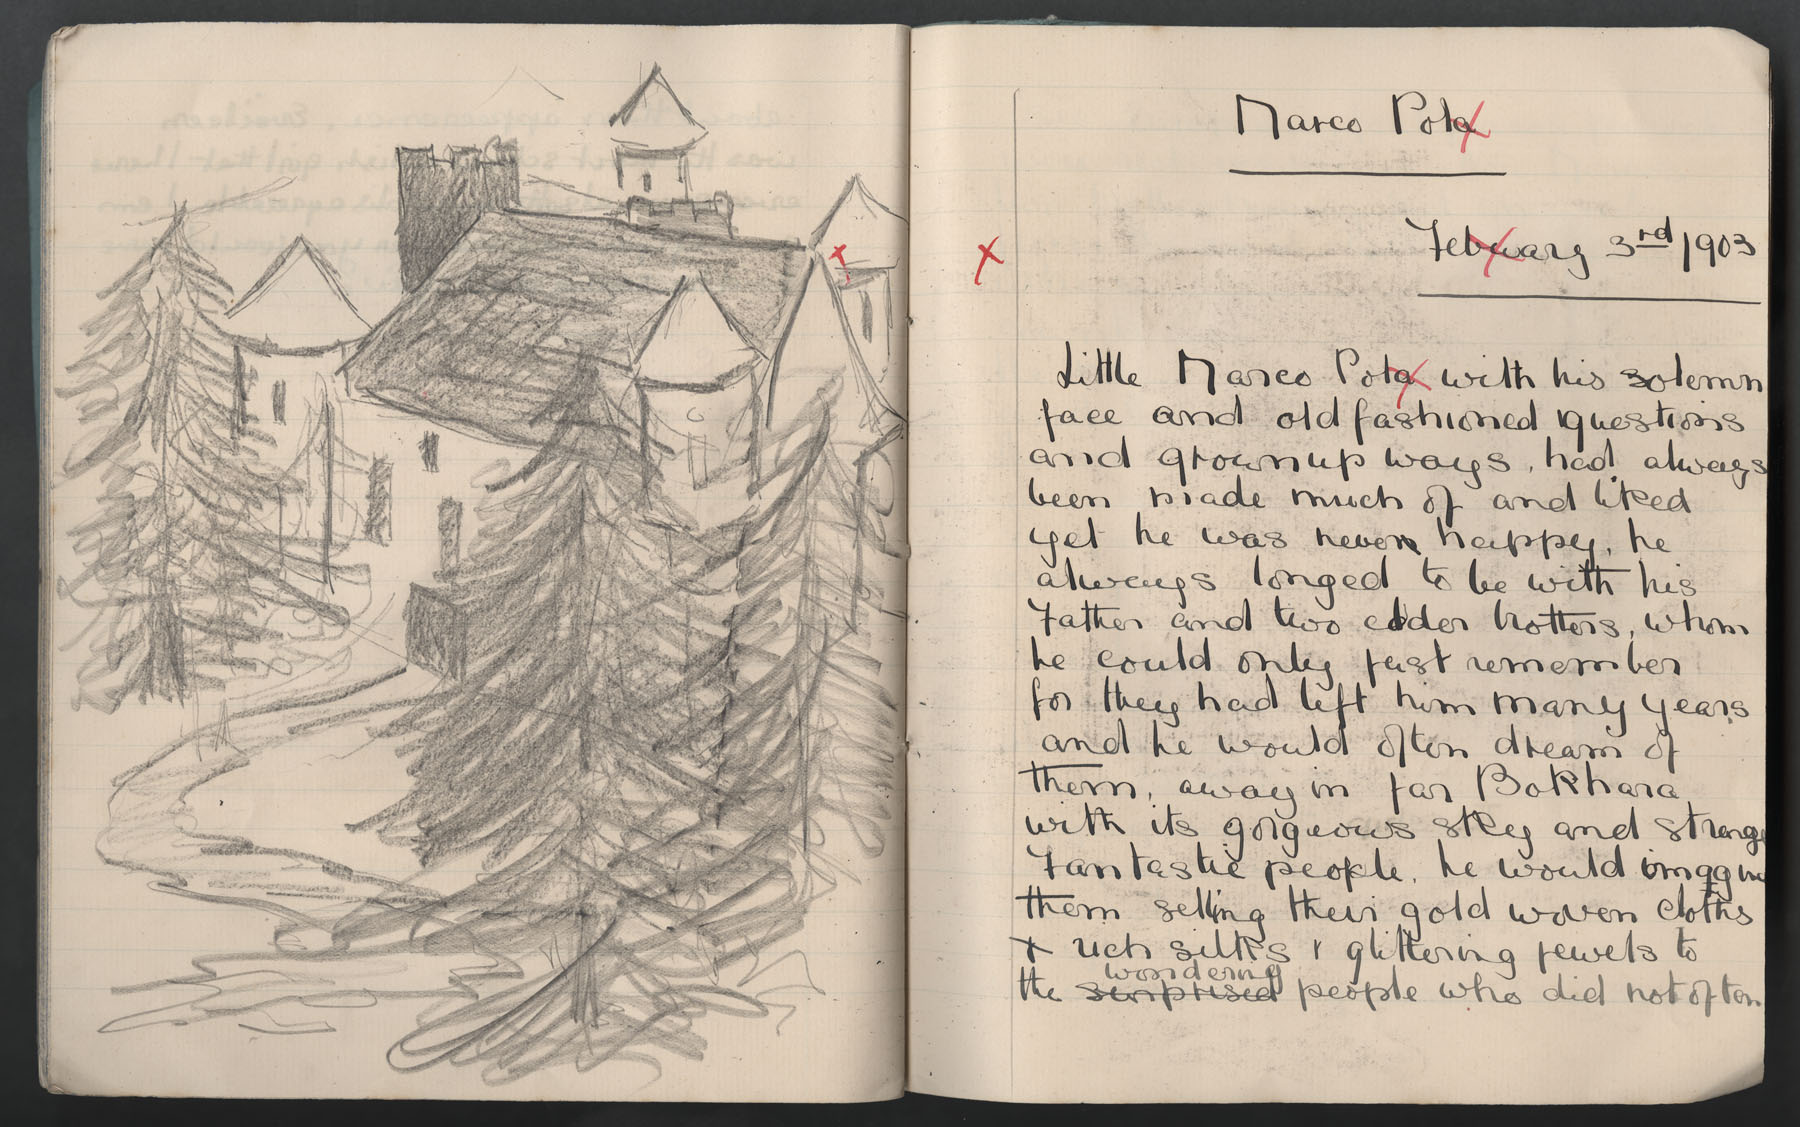 Marco Pola
February 3rd 1903
Little Marco Pola with his solemn
face and old fashioned questions
and grownup ways, had always
been made much of and liked
yet he was never happy, he
always longed to be with his
Father and two elder brotters, whom
he could only just remember
for they had left him many years
and he would often dream of
them, away in far Bokhara
with its gorgeous sky and strange
Fantastic people. he would imagine
them selling their gold woven cloths
+ rich silks + glittering jewels to
wondering
the surprised people who did not often